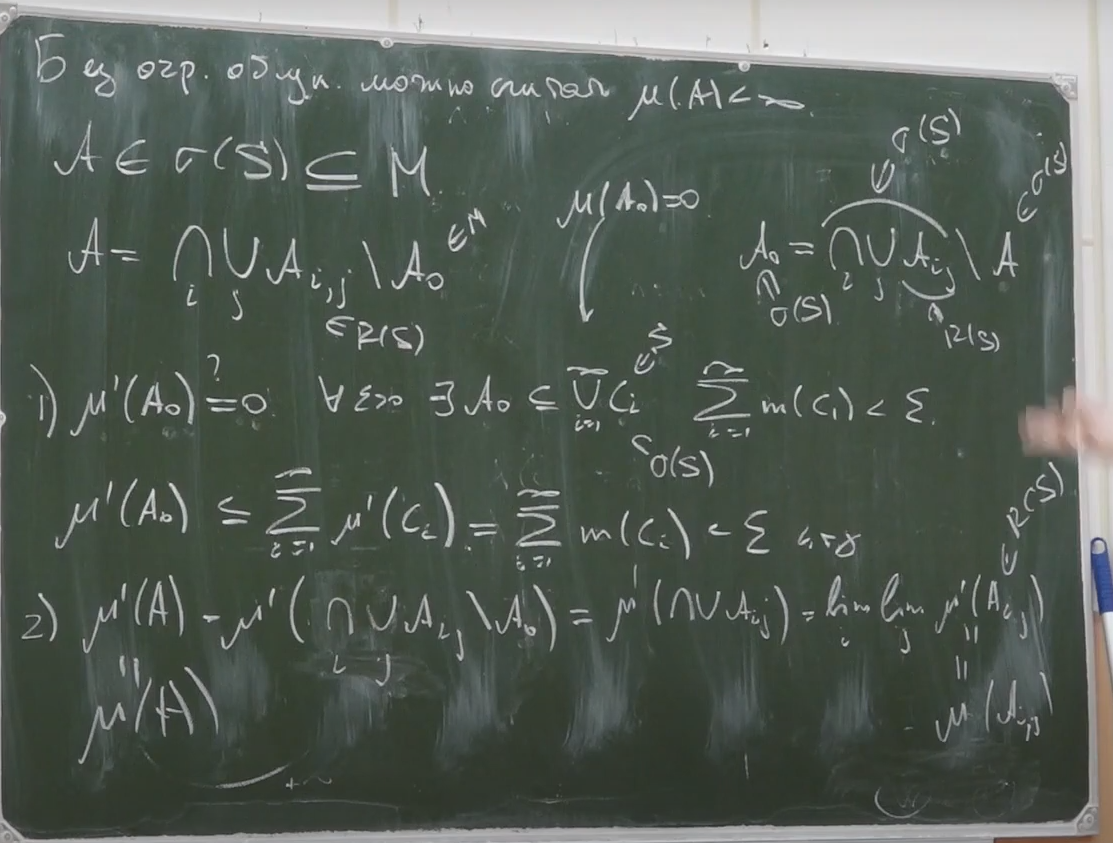 Без огр. общн. можно считать μ(A)<∞
A ∈ σ(S) ⊆ M
μ(A₀)=0
σ(S)
∈ σ(S)
A = ⋂ᵢ⋃ⱼ Aᵢ,ⱼ \ A₀ ∈M
∈R(S)
A₀ = ⋂ᵢ⋃ⱼ Aᵢⱼ \ A
∩ σ(S)
R(S)
1) μ'(A₀) ?= 0 ∀ε>0 ∃ A₀ ⊆ ⋃ᵢ₌₁^∞ Cᵢ ∈ S ∑ᵢ₌₁^∞ m(Cᵢ) < ε.
⊂ σ(S)
μ'(A₀) ≤ ∑ᵢ₌₁^∞ μ'(Cᵢ) = ∑ᵢ₌₁^∞ m(Cᵢ) < ε
∈ R(S)
2) μ'(A) = μ'(⋂ᵢ⋃ⱼ Aᵢⱼ \ A₀) = μ'(⋂⋃ Aᵢⱼ) = limᵢ limⱼ μ'(Aᵢ,ⱼ)
μ'(A)
= μ(Aᵢ,ⱼ)
+∞